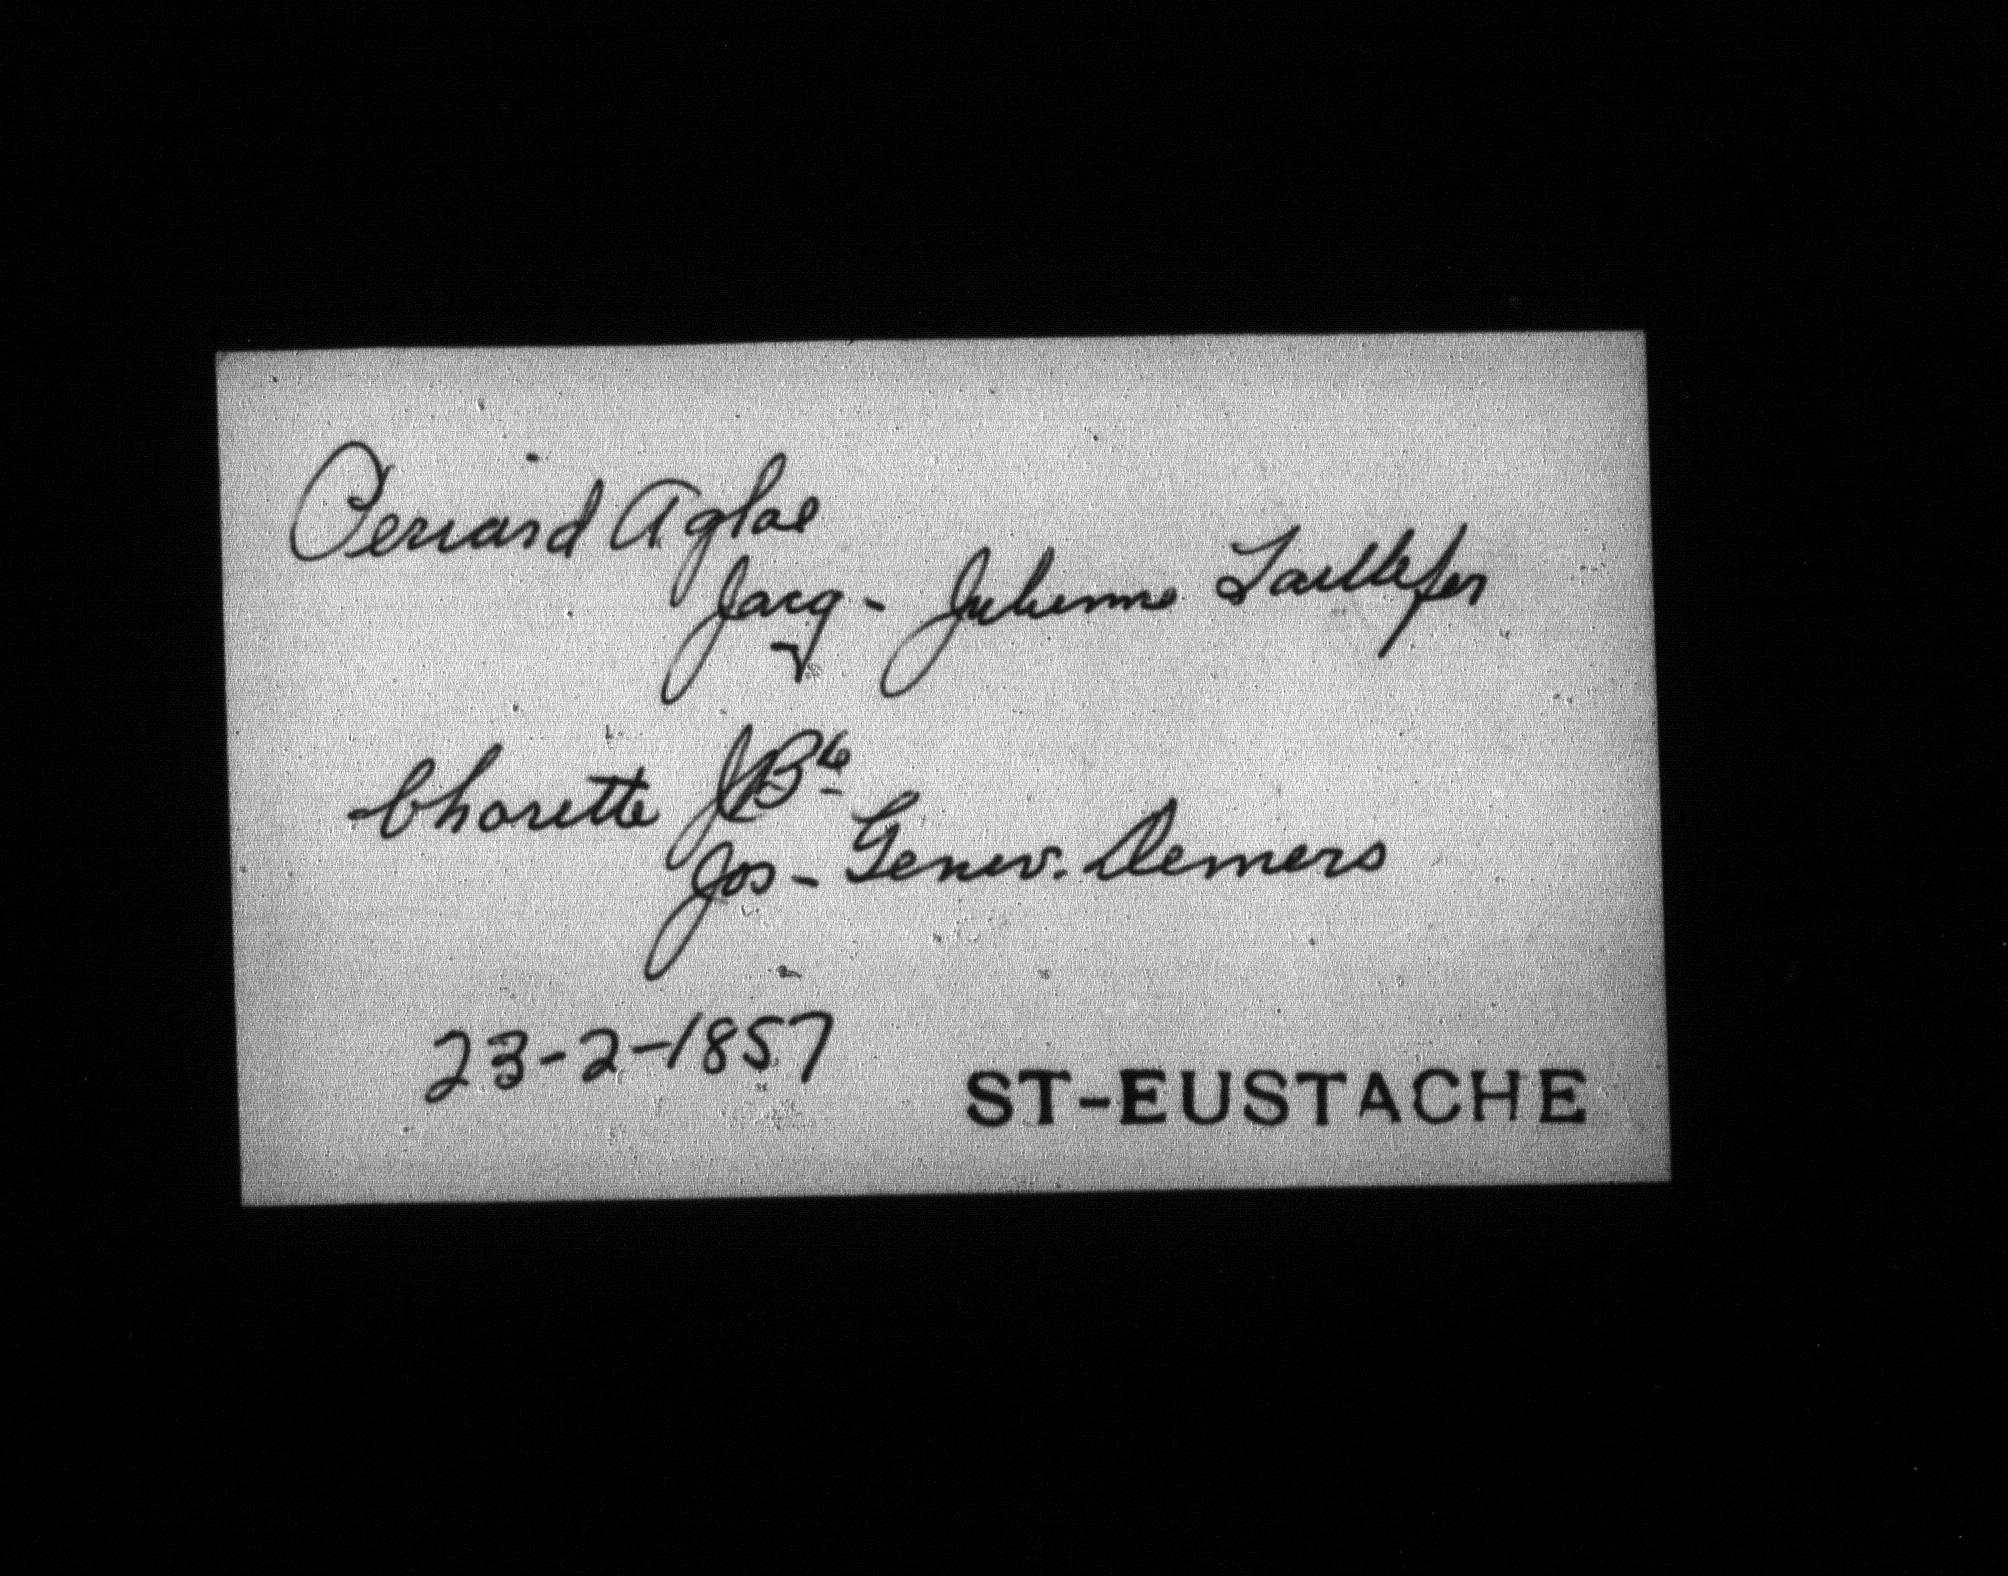 Periard Aglae
Jacq - Julienne Taillefer
Charette JBte
Jos - Genev. Demers
23-2-1857
ST-EUSTACHE